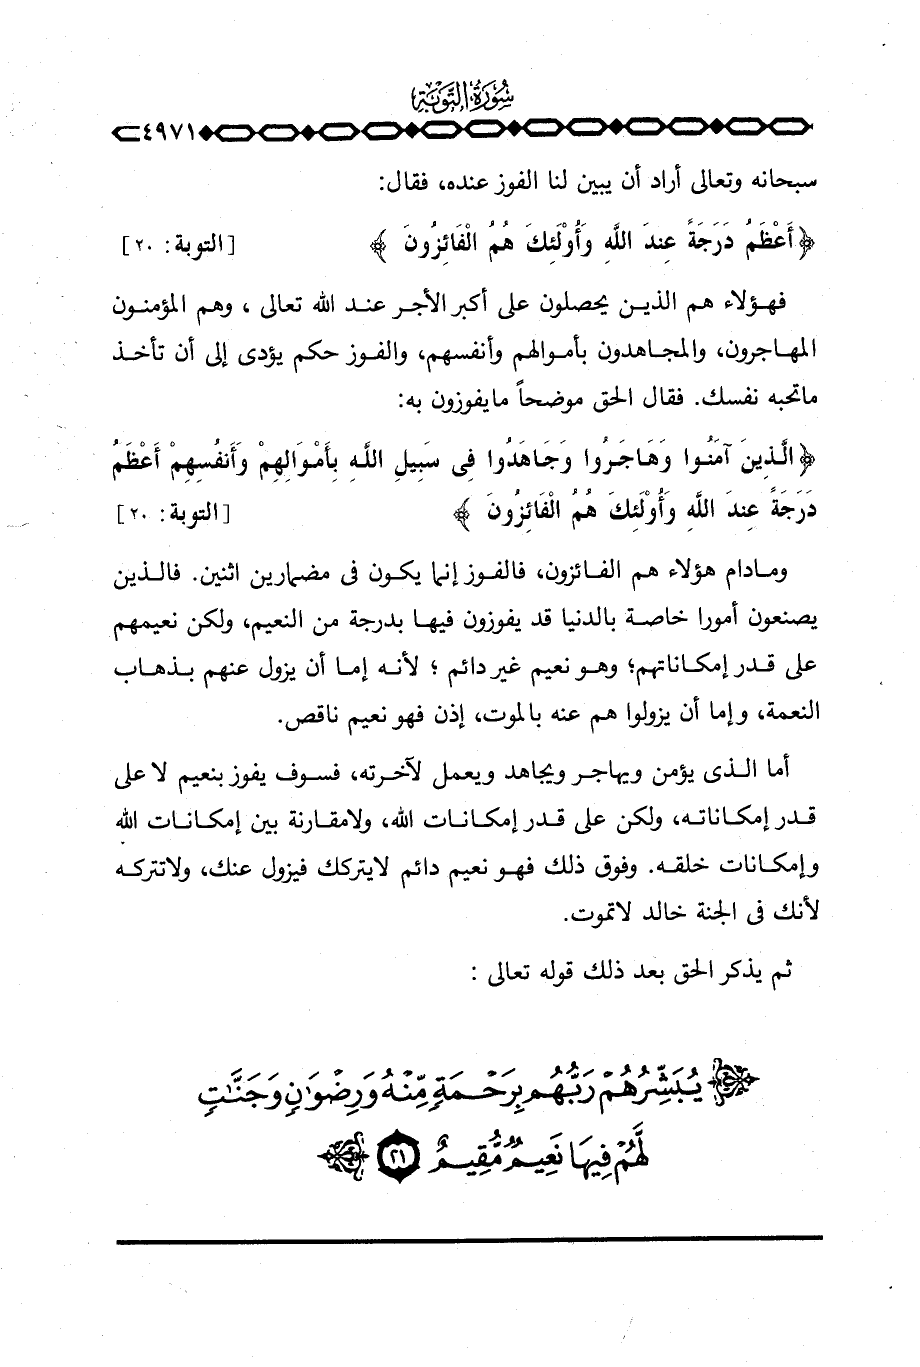 سُورَةُ التَّوْبَةِ
٤٩٧١
سبحانه وتعالى أراد أن يبين لنا الفوز عنده، فقال:
﴿ أَعْظَمُ دَرَجَةً عِندَ اللَّهِ وَأُوْلَئِكَ هُمُ الْفَائِزُونَ ﴾ [التوبة: ٢٠]
فهؤلاء هم الذين يحصلون على أكبر الأجر عند الله تعالى ، وهم المؤمنون
المهاجرون، والمجاهدون بأموالهم وأنفسهم، والفوز حكم يؤدى إلى أن تأخذ
ماتحبه نفسك. فقال الحق موضحاً مايفوزون به:
﴿ الَّذِينَ آمَنُوا وَهَاجَرُوا وَجَاهَدُوا فِى سَبِيلِ اللَّهِ بِأَمْوَالِهِمْ وَأَنفُسِهِمْ أَعْظَمُ
دَرَجَةً عِندَ اللَّهِ وَأُوْلَئِكَ هُمُ الْفَائِزُونَ ﴾ [التوبة: ٢٠]
ومادام هؤلاء هم الفائزون، فالفوز إنما يكون فى مضمارين اثنين. فالذين
يصنعون أمورا خاصة بالدنيا قد يفوزون فيها بدرجة من النعيم، ولكن نعيمهم
على قدر إمكاناتهم؛ وهو نعيم غير دائم ؛ لأنه إما أن يزول عنهم بذهاب
النعمة، وإما أن يزولوا هم عنه بالموت، إذن فهو نعيم ناقص.
أما الذى يؤمن ويهاجر ويجاهد ويعمل لآخرته، فسوف يفوز بنعيم لا على
قدر إمكاناته، ولكن على قدر إمكانات الله، ولامقارنة بين إمكانات الله
وإمكانات خلقه. وفوق ذلك فهو نعيم دائم لايتركك فيزول عنك، ولاتتركه
لأنك فى الجنة خالد لاتموت.
ثم يذكر الحق بعد ذلك قوله تعالى :
﴿ يُبَشِّرُهُمْ رَبُّهُم بِرَحْمَةٍ مِّنْهُ وَرِضْوَٰنٍ وَجَنَّٰتٍ
لَّهُمْ فِيهَا نَعِيمٌ مُّقِيمٌ ٢١ ﴾